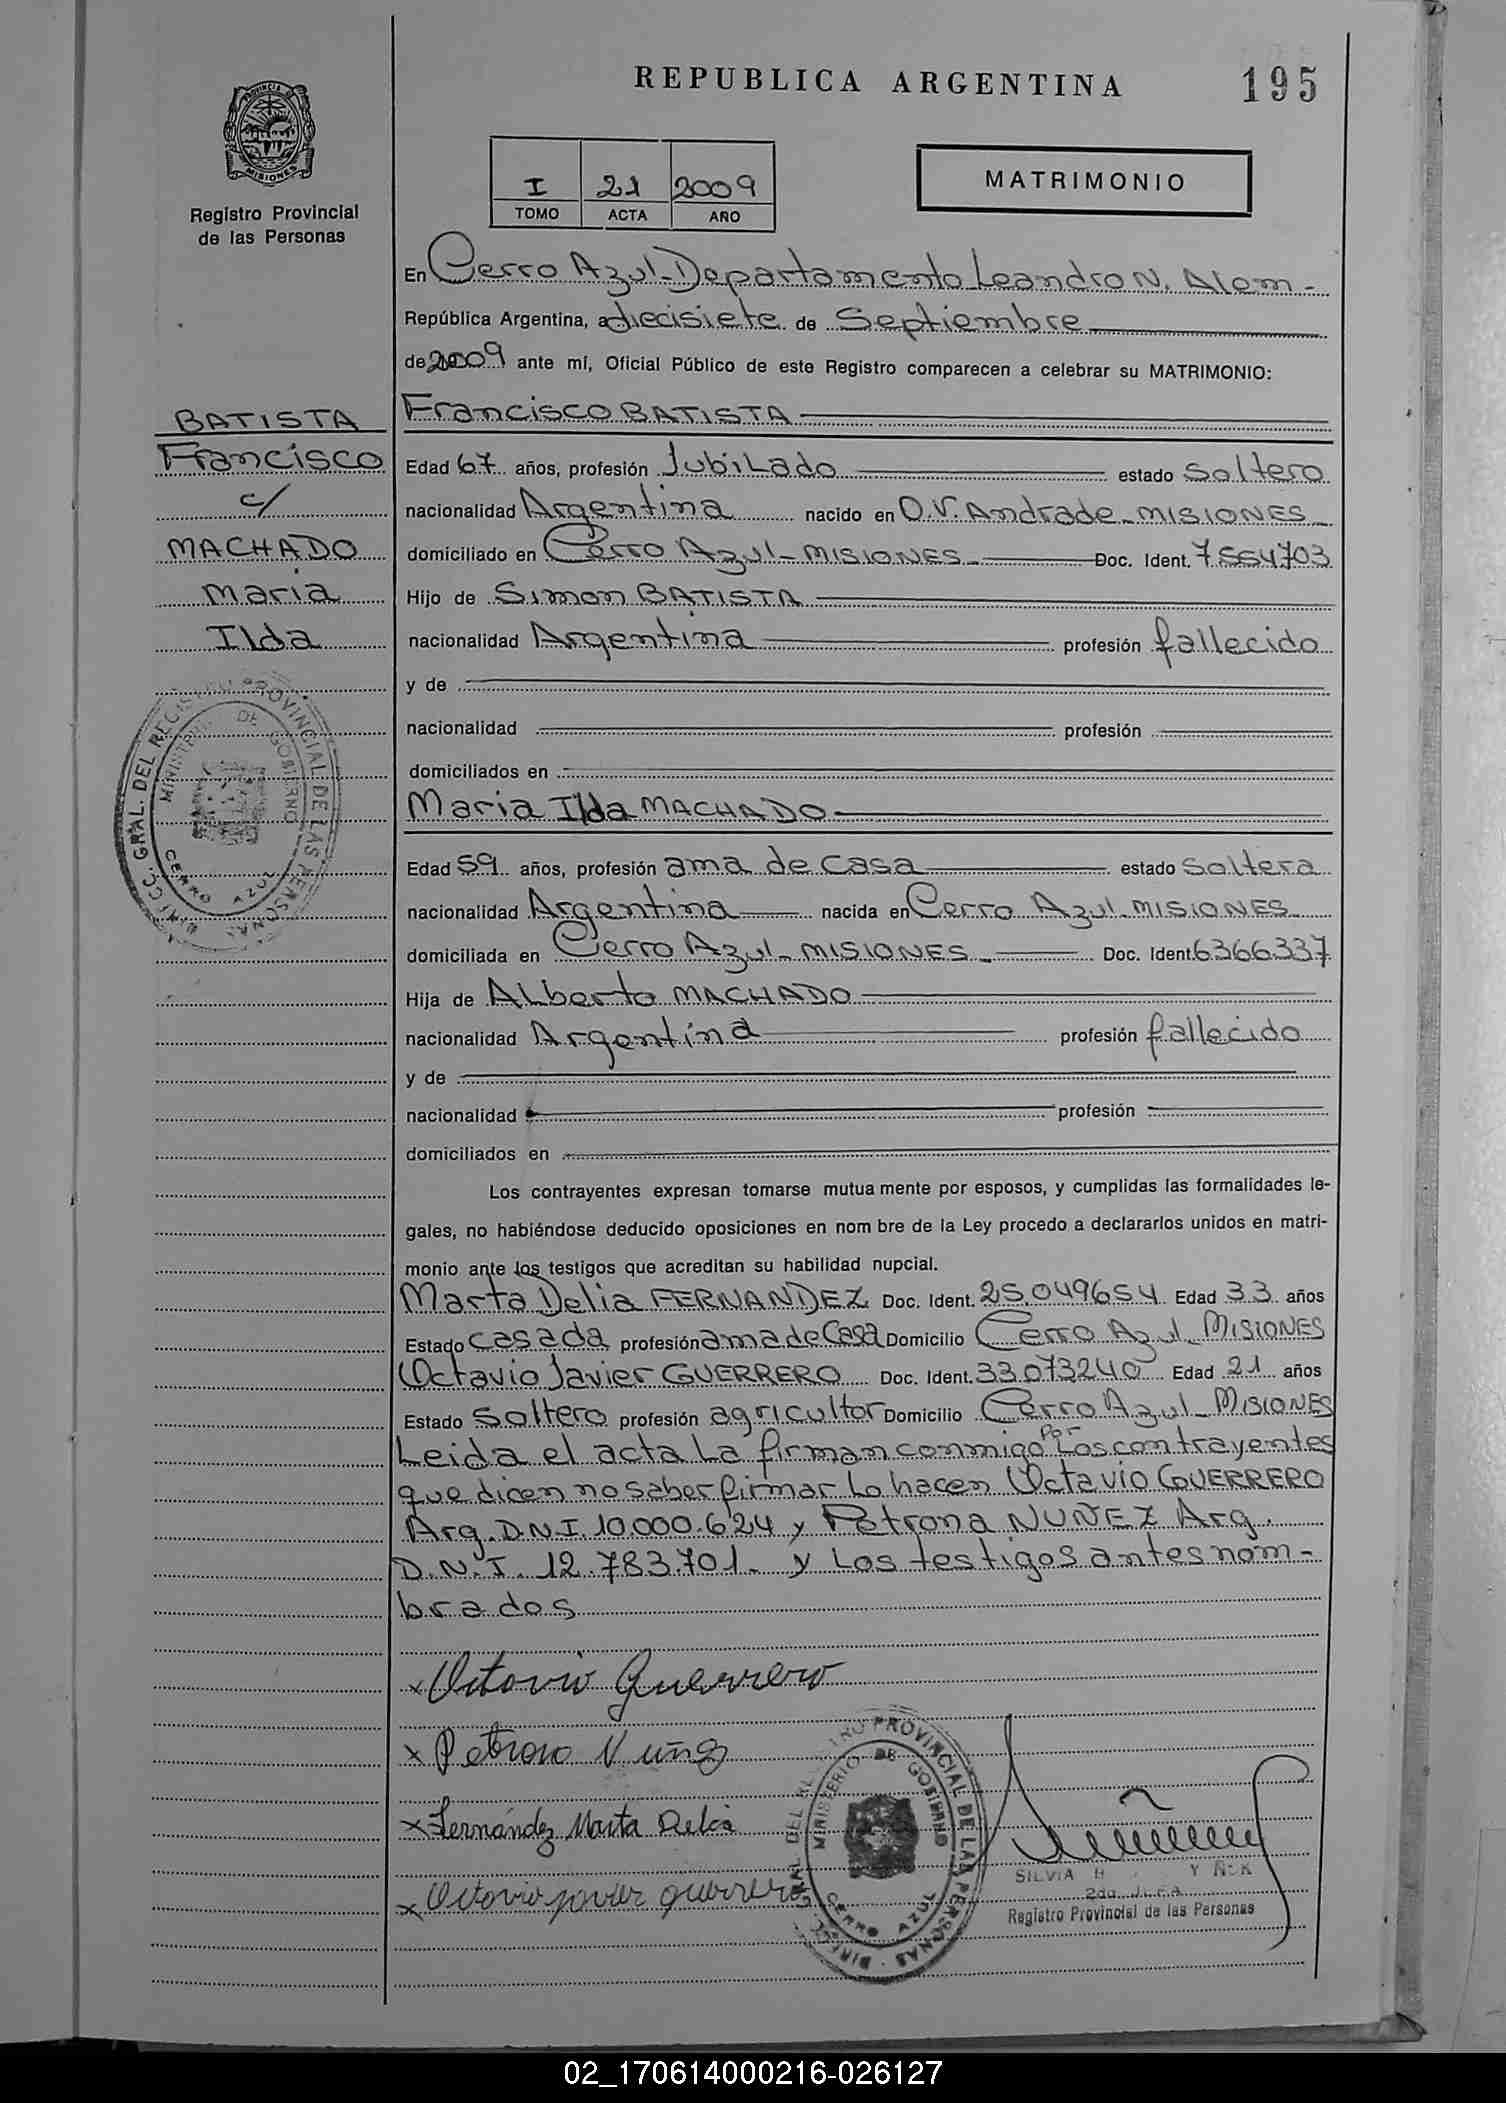 REPUBLICA ARGENTINA
195
PROVINCIA DE
MISIONES
Registro Provincial
de las Personas
I 21 2009
TOMO ACTA AÑO
MATRIMONIO
En Cerro Azul-Departamento Leandro N. Alem-
República Argentina, a diecisiete de Septiembre
de 2009 ante mí, Oficial Público de este Registro comparecen a celebrar su MATRIMONIO:
BATISTA
Francisco
c/
MACHADO
Maria
Ilda
Francisco BATISTA
Edad 67 años, profesión Jubilado estado Soltero
nacionalidad Argentina nacido en O.V. Andrade-MISIONES
domiciliado en Cerro Azul-MISIONES- Doc. Ident. 7554703
Hijo de Simon BATISTA
nacionalidad Argentina profesión fallecido
y de
nacionalidad profesión
domiciliados en
DIRECC. GRAL. DEL REGISTRO PROVINCIAL DE LAS PERSONAS
MINISTERIO DE GOBIERNO
CERRO AZUL
Maria Ilda MACHADO
Edad 59 años, profesión ama de casa estado Soltera
nacionalidad Argentina nacida en Cerro Azul-MISIONES
domiciliada en Cerro Azul-MISIONES- Doc. Ident. 6366337
Hija de Alberto MACHADO
nacionalidad Argentina profesión fallecido
y de
nacionalidad profesión
domiciliados en
Los contrayentes expresan tomarse mutua mente por esposos, y cumplidas las formalidades le-
gales, no habiéndose deducido oposiciones en nom bre de la Ley procedo a declararlos unidos en matri-
monio ante los testigos que acreditan su habilidad nupcial.
Marta Delia FERNANDEZ Doc. Ident. 25.049654 Edad 33 años
Estado Casada profesión ama de Casa Domicilio Cerro Azul-MISIONES
Octavio Javier GUERRERO Doc. Ident. 33073240 Edad 21 años
Estado Soltero profesión agricultor Domicilio Cerro Azul-MISIONES
Leida el acta la firman conmigo por Los contrayentes
que dicen no saber firmar lo hacen Octavio GUERRERO
Arg. D.N.I. 10.000.624 y Petrona NUÑEZ Arg.
D.N.I. 12.783.701. y Los testigos antes nom-
brados
x Octavio Guerrero
x Petrona Nuñez
x Fernández Marta Delia
x Octavio javier guerrero
DIRECC. GRAL DEL REGISTRO PROVINCIAL DE LAS PERSONAS
MINISTERIO DE GOBIERNO
CERRO AZUL
SILVIA
2da. JEFA
Registro Provincial de las Personas
02_170614000216-026127